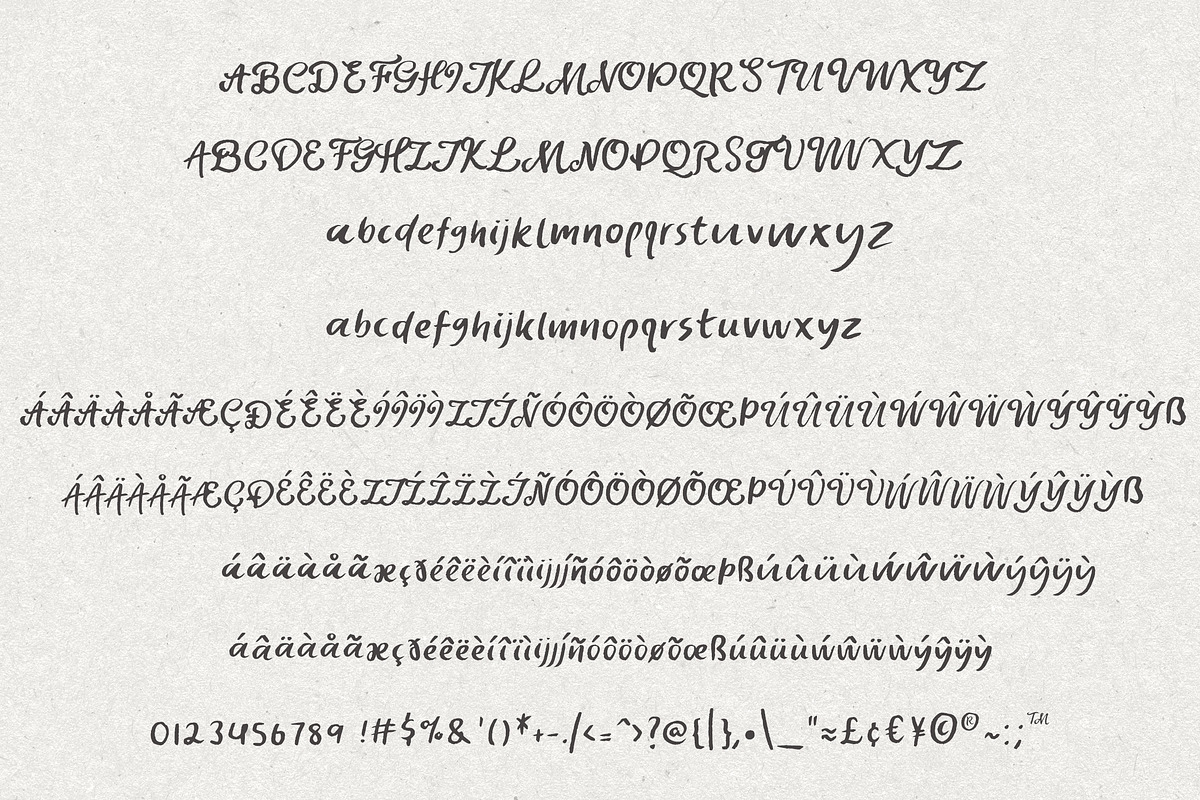 ABCDEFGHIJKLMNOPQRSTUVWXYZ
ABCDEFGHIJKLMNOPQRSTUVWXYZ
abcdefghijklmnopqrstuvwxyz
abcdefghijklmnopqrstuvwxyz
ÁÂÄÀÅÃÆÇÐÉÊËÈÍÎÏÌIJJ́ÑÓÔÖÒØÕŒÞÚÛÜÙẂŴẄẀÝŶŸỲß
ÁÂÄÀÅÃÆÇÐÉÊËÈIJÍÎÏÌJ́ÑÓÔÖÒØÕŒÞÚÛÜÙẂŴẄẀÝŶŸỲß
áâäàåãæçðéêëèíîïìijj́ñóôöòøõœþßúûüùẃŵẅẁýŷÿỳ
áâäàåãæçðéêëèíîïìijj́ñóôöòøõœßúûüùẃŵẅẁýŷÿỳ
0123456789 !#$%&'()*+-./<=^>?@{|},•\_"≈£¢€¥©®~:;™